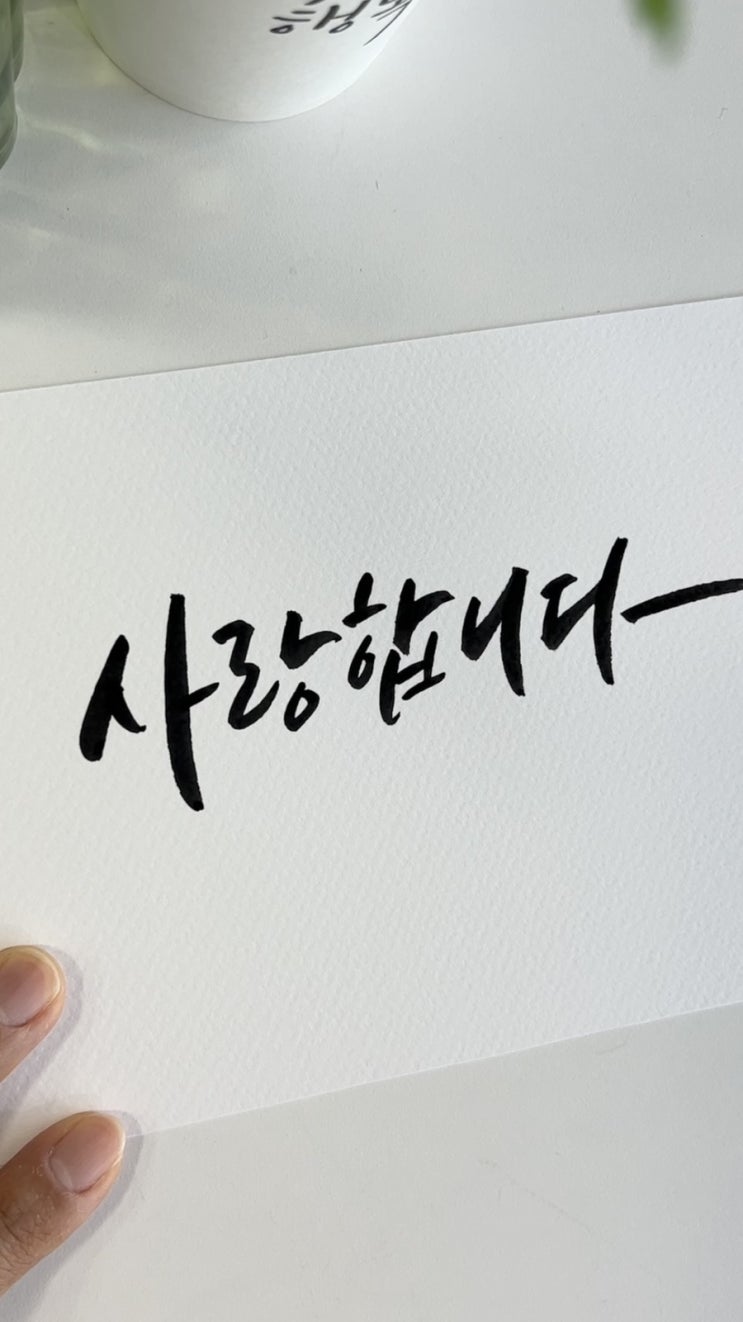 사랑합니다